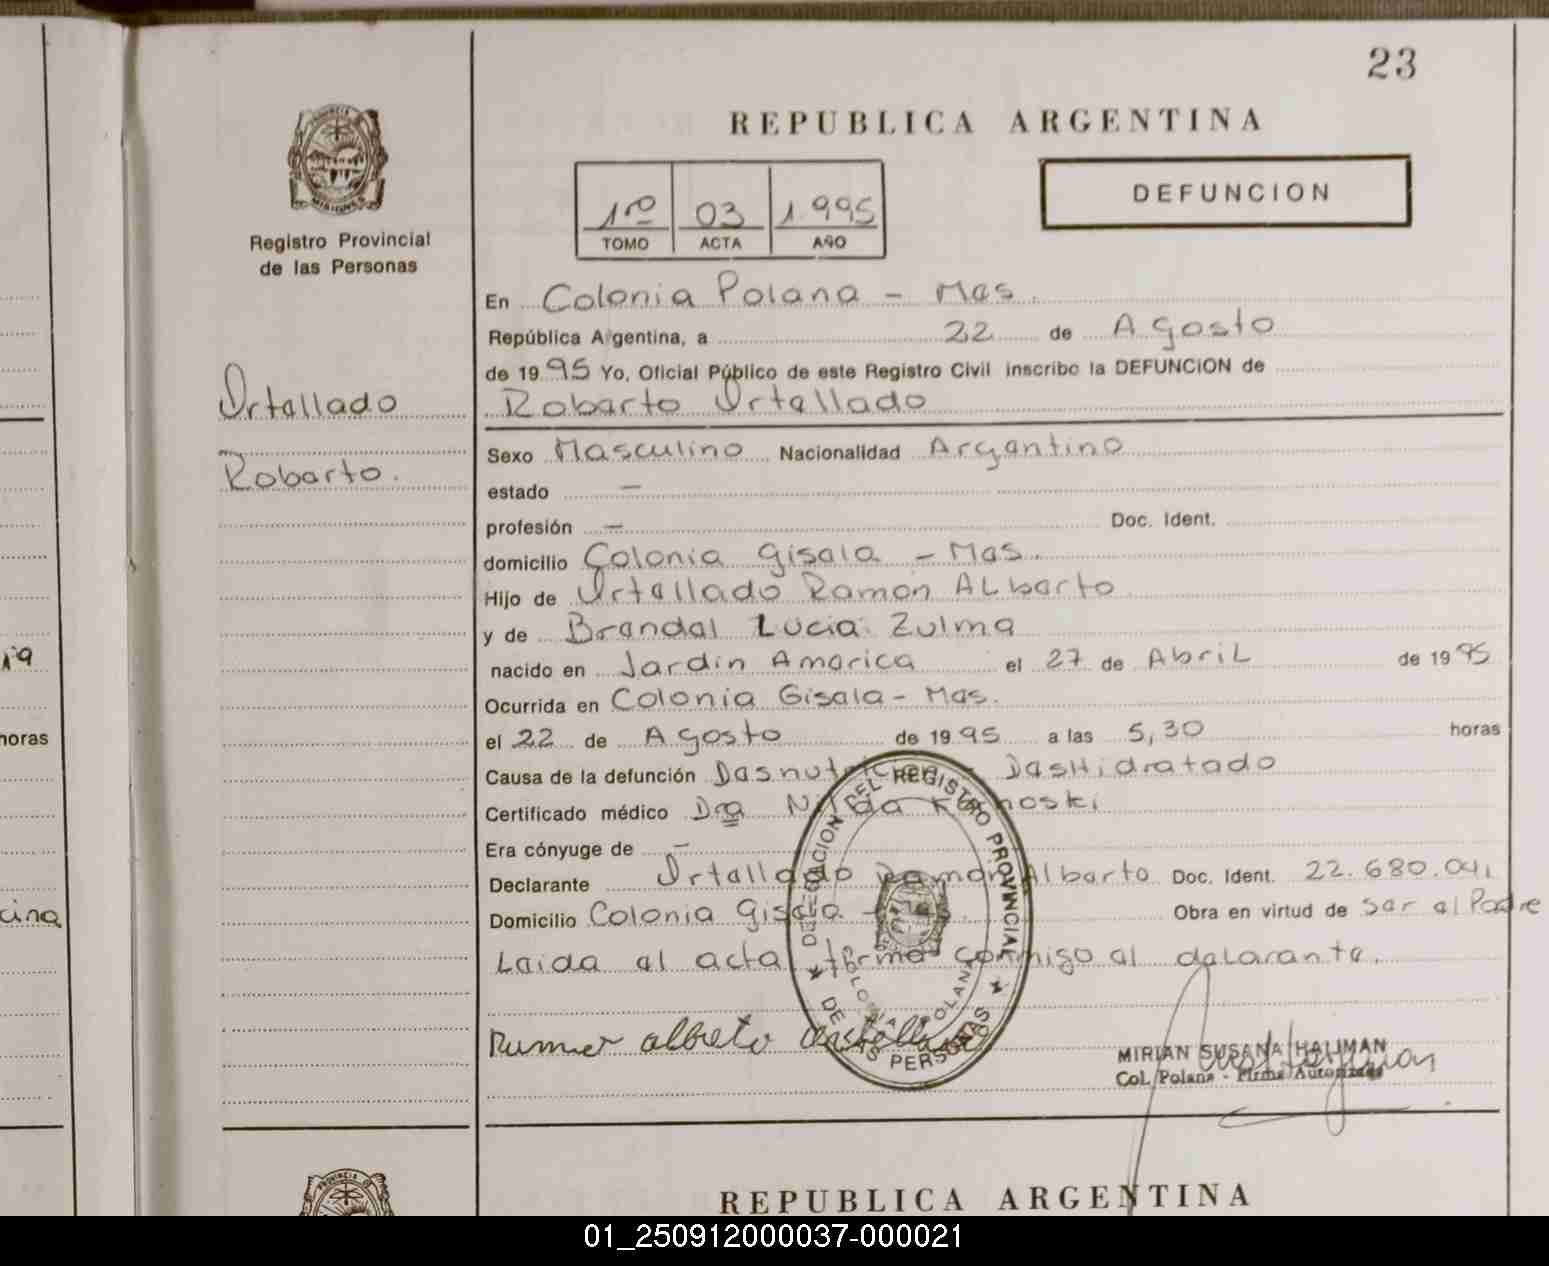 23
REPUBLICA ARGENTINA
1ro 03 1.995
TOMO ACTA AÑO
DEFUNCION
Registro Provincial
de las Personas
Ortellado
Roberto.
En Colonia Polana - Mes.
República Argentina, a 22 de Agosto
de 1995 Yo, Oficial Público de este Registro Civil inscribo la DEFUNCION de
Roberto Ortellado
Sexo Masculino Nacionalidad Argentino
estado —
profesión — Doc. Ident.
domicilio Colonia Gisela - Mes.
Hijo de Ortellado Ramón Alberto
y de Brendel Lucia Zulma
nacido en Jardin America el 27 de Abril de 1995
Ocurrida en Colonia Gisela - Mes.
el 22 de Agosto de 1995 a las 5,30 horas
Causa de la defunción Desnutricion - DesHidratado
Certificado médico Dra
Era cónyuge de —
Declarante Ortellado Ramon Alberto Doc. Ident. 22.680.041
Domicilio Colonia Gisela - Mes. Obra en virtud de ser el Padre
Leida el acta, firma conmigo el delarante.
DELEGACION DEL REGISTRO PROVINCIAL
DE LAS PERSONAS
COLONIA POLANA
MIRIAN SUSANA HALJMAN
Col. Polana - Firma Autorizada
REPUBLICA ARGENTINA
horas
01_250912000037-000021